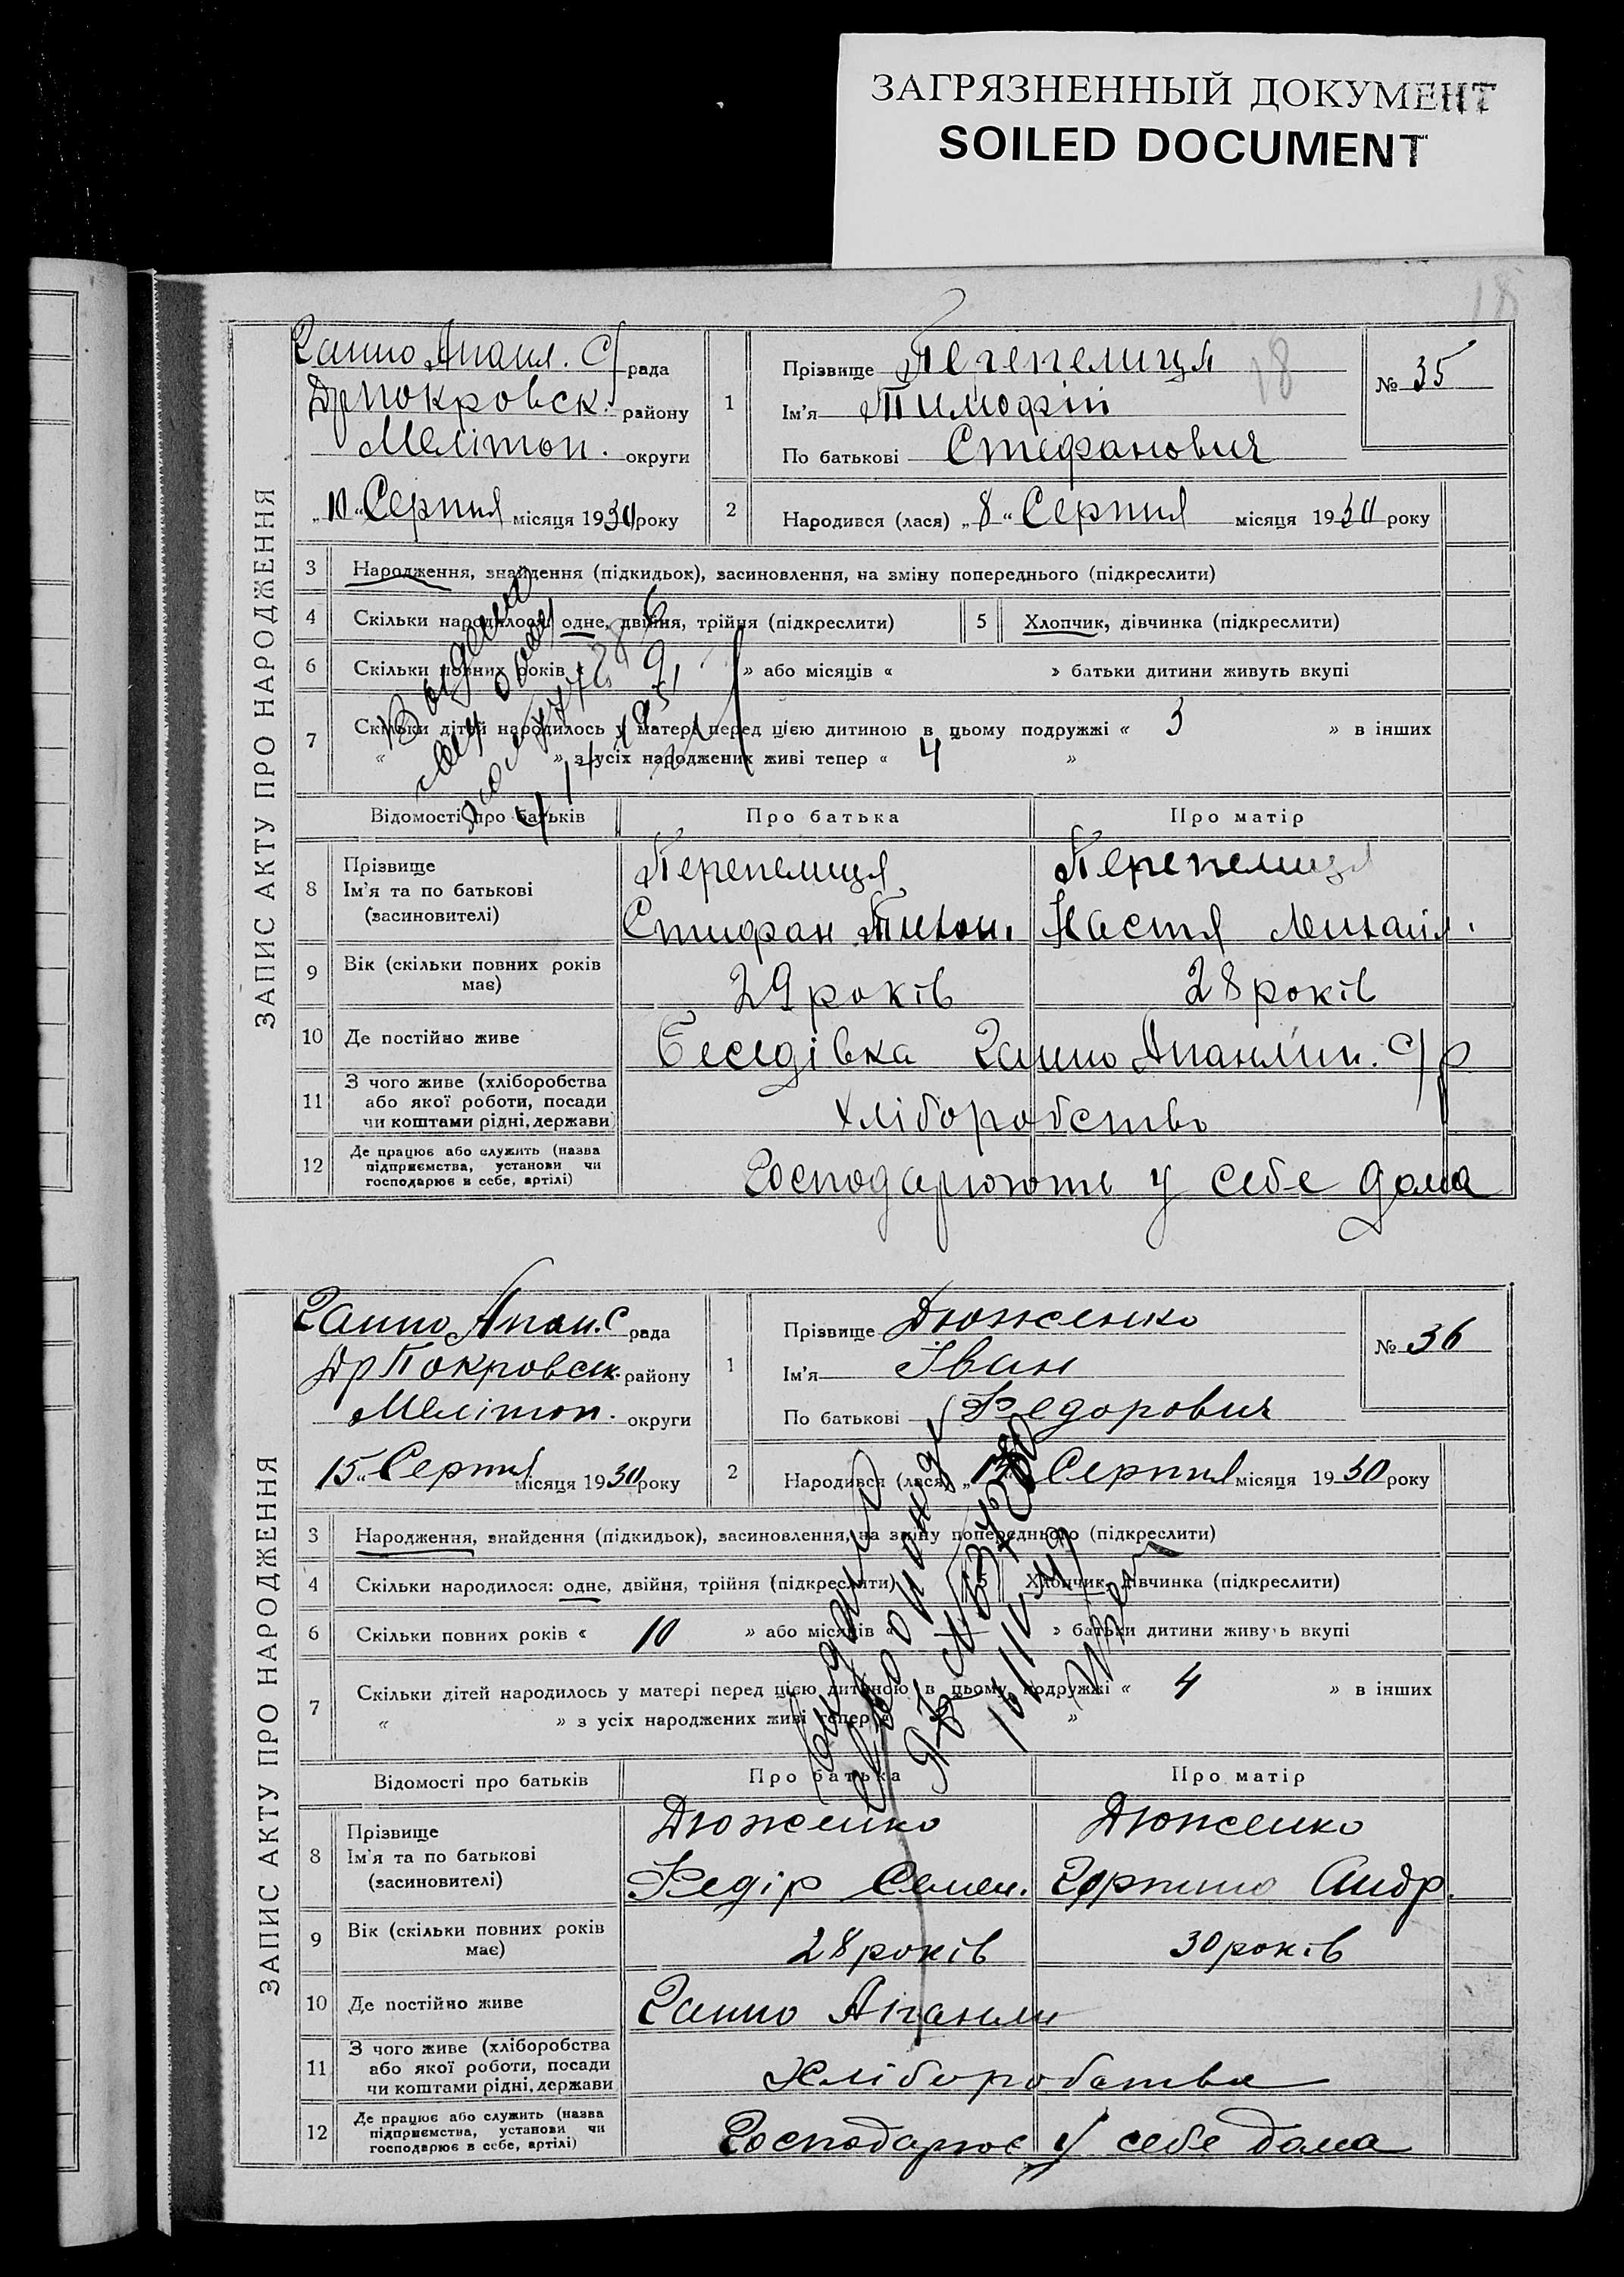 ЗАГРЯЗНЕННЫЙ ДОКУМЕНТ
SOILED DOCUMENT
18
ЗАПИС АКТУ ПРО НАРОДЖЕННЯ
Ганно Апанл. С/ рада
Дрпокровск. району
Мелітоп. округи
„10“ Серпня місяця 1930 року
1 Прізвище Перепелиця
Ім'я Тимофій
По батькові Стефанович
18
№ 35
2 Народився (лася) „8“ Серпня місяця 1930 року
3 Народження, знайдення (підкидьок), засиновлення, на зміну попереднього (підкреслити)
4 Скільки народилося: одне, двійня, трійня (підкреслити) 5 Хлопчик, дівчинка (підкреслити)
6 Скільки повних років « 9 » або місяців « » батьки дитини живуть вкупі
7 Скільки дітей народилось у матері перед цією дитиною в цьому подружжі « 3 » в інших
« » з усіх народжених живі тепер « 4 »
Відомості про батьків Про батька Про матір
8 Прізвище Ім'я та по батькові (засиновителі)
Перепелиця Перепелиця
Стифан Тихон. Настя Михайл.
9 Вік (скільки повних років має) 29 років 28 років
10 Де постійно живе Беседівка Ганно Апанлин. С/р
11 З чого живе (хліборобства або якої роботи, посади чи коштами рідні, держави
хліборобство
12 Де працює або служить (назва підприємства, установи чи господарює в себе, артілі)
Господарюють у себе дома
ЗАПИС АКТУ ПРО НАРОДЖЕННЯ
Ганно Апан. С рада
Др Покровск. району
Мелітоп. округи
15 „ Серпня місяця 1930 року
1 Прізвище Дюженко
Ім'я Іван
По батькові Федорович
№ 36
2 Народився (лася) „ Серпня місяця 1930 року
3 Народження, знайдення (підкидьок), засиновлення, на зміну попереднього (підкреслити)
4 Скільки народилося: одне, двійня, трійня (підкреслити) Хлопчик, дівчинка (підкреслити)
6 Скільки повних років « 10 » або місяців « » батьки дитини живуть вкупі
7 Скільки дітей народилось у матері перед цією дитиною в цьому подружжі « 4 » в інших
« » з усіх народжених живі тепер « »
Відомості про батьків Про батька Про матір
8 Прізвище Ім'я та по батькові (засиновителі)
Дюженко Дюженко
Федір Семен. Горпино Андр.
9 Вік (скільки повних років має) 28 років 30 років
10 Де постійно живе Ганно Апанлин
11 З чого живе (хліборобства або якої роботи, посади чи коштами рідні, держави
Хліборобства
12 Де працює або служить (назва підприємства, установи чи господарює в себе, артілі)
Господарює у себе дома